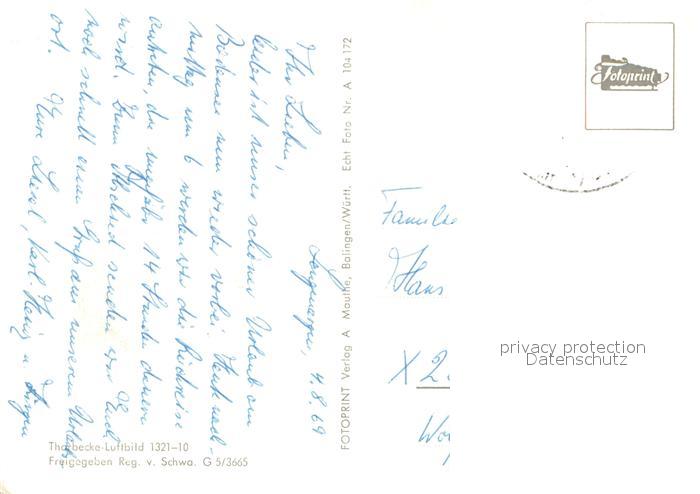 Langenargen, 4.8.69
Ihr Lieben,
leider ist unser schöner Urlaub am
Bodensee nun wieder vorbei. Heute nach-
mittag um 6 werden wir die Rückreise
antreten, die ungefähr 14 Stunden dauern
wird. Zum Abschied senden wir Euch
noch schnell einen Gruß aus unserem Urlaubs
ort.
Eure Liesel, Karl-Heinz u. Jürgen
Thorbecke-Luftbild 1321-10
Freigegeben Reg. v. Schwa. G 5/3665
FOTOPRINT Verlag A Mauthe, Balingen/Württ. Echt Foto Nr. A 104 172
Fotoprint
Familie
Hans
X 2.
privacy protection
Datenschutz